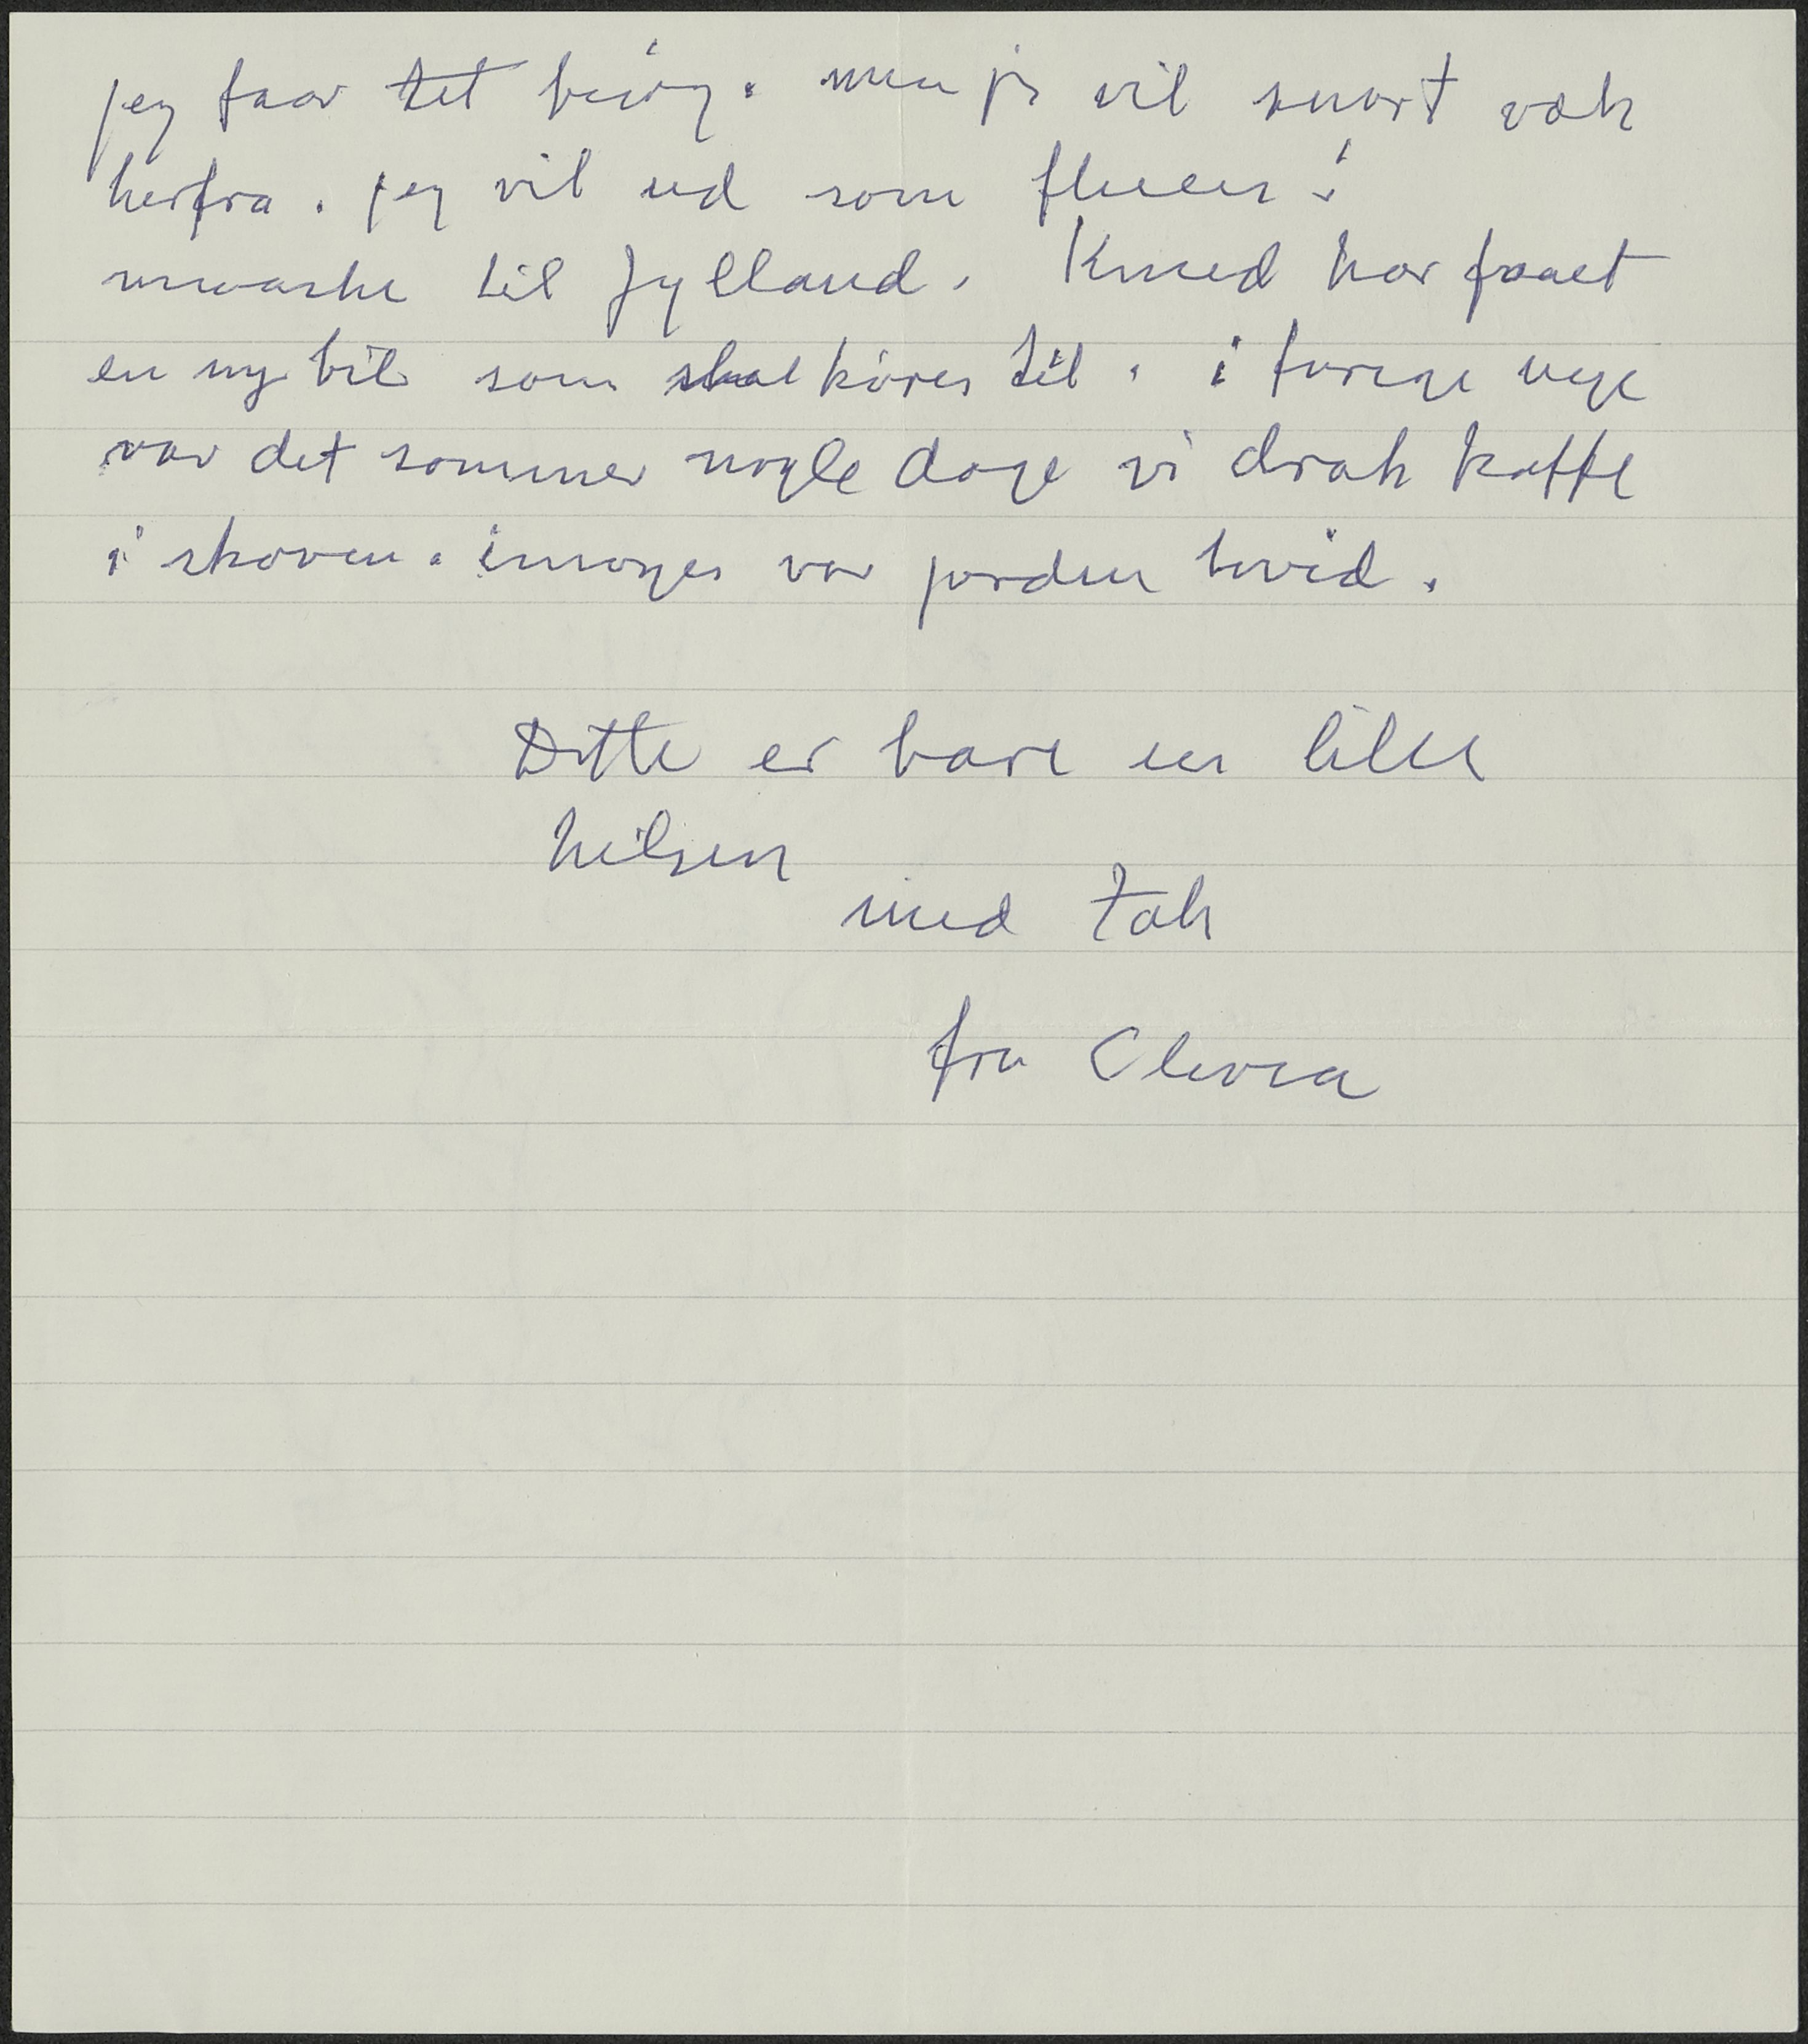 jeg faar tit besøg. men jeg vil snart væk
herfra. jeg vil ud som fluen!
maaske til Jylland. Knud har faaet
en ny bil som skal køres til. i forrige uge
var det sommer nogle dage vi drak kaffe
i skoven. imorges var jorden hvid.
Dette er bare en lille
hilsen
med Tak
fra Clivia